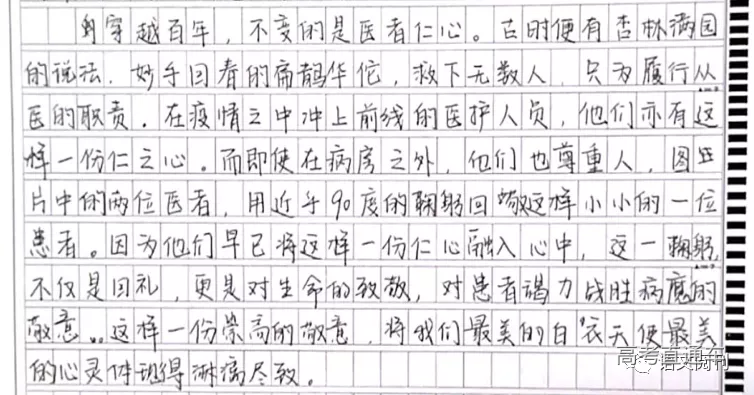 穿越百年，不变的是医者仁心。古时便有杏林满园
的说法，妙手回春的扁鹊华佗，救下无数人，只为履行从
医的职责。在疫情之中冲上前线的医护人员，他们亦有这
样一份仁之心。而即使在病房之外，他们也尊重人，图
片中的两位医者，用近乎90度的鞠躬回敬这样小小的一位
患者。因为他们早已将这样一份仁心融入心中，这一鞠躬，
不仅是回礼，更是对生命的致敬，对患者竭力战胜病魔的
敬意。这样一份崇高的敬意，将我们最美的白衣天使最美
的心灵体现得淋漓尽致。
高考直通车
语文周刊